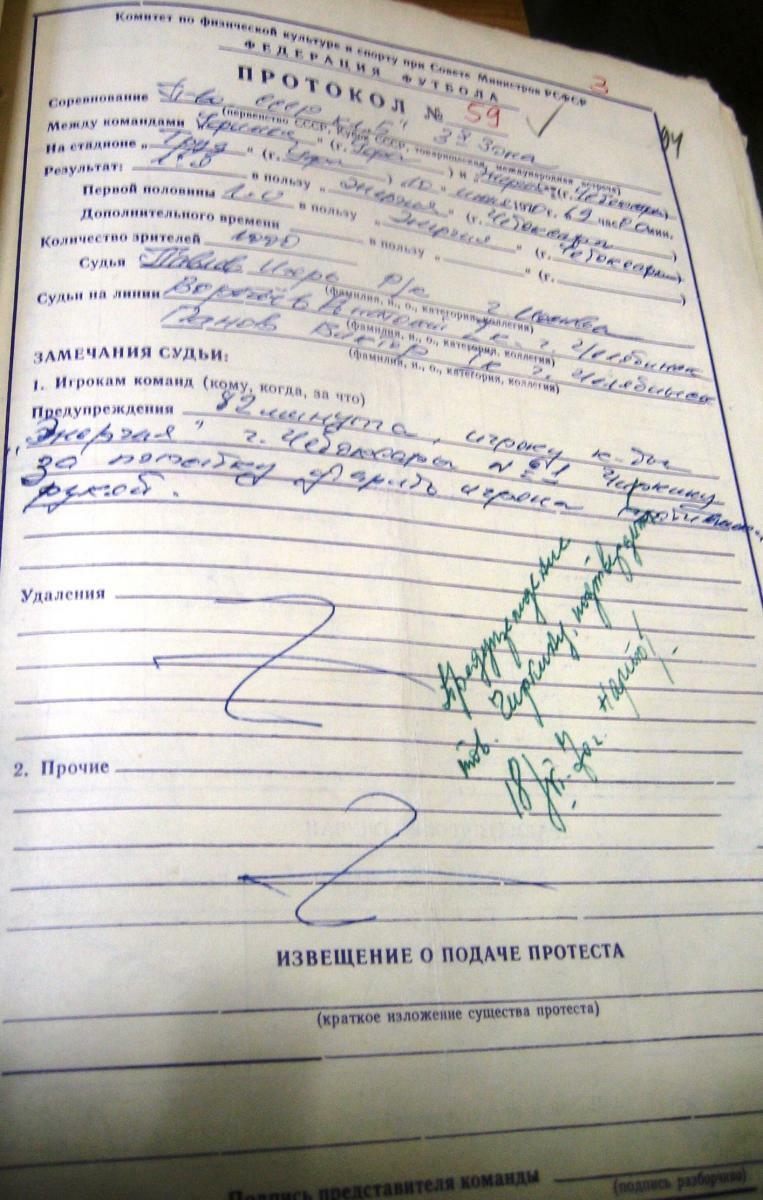 Комитет по физической культуре и спорту при Совете Министров РСФСР
ФЕДЕРАЦИЯ ФУТБОЛА
3
ПРОТОКОЛ № 59
94
Соревнование П-во СССР кл. "Б" 3я Зона
(первенство СССР, Кубок СССР, товарищеская, международная встреча)
Между командами " (г. Уфа) и "Энергия" (г. Чебоксары)
На стадионе „Труд" (г. Уфа) 10 1970 г. 19 час 00 мин.
Результат: в пользу „Энергия" (г. Чебоксары)
Первой половины 1:0 в пользу „Энергия" (г. Чебоксары)
Дополнительного времени в пользу „ " (г. )
Количество зрителей
Судья Павлов Игорь р/к г. Москва
(фамилия, и., о., категория, коллегия)
Судьи на линии г. Челябинск
(фамилия, и., о., категория, коллегия)
Панов Виктор г. Челябинск
(фамилия, и., о., категория, коллегия)
ЗАМЕЧАНИЯ СУДЬИ:
1. Игрокам команд (кому, когда, за что)
Предупреждения 82 минута, игроку к-ды
„Энергия" г. Чебоксары № Чиркину
за попытку ударить игрока
рукой.
Удаления
Предупреждение
тов. Чиркину
18/ 70г.
2. Прочие
ИЗВЕЩЕНИЕ О ПОДАЧЕ ПРОТЕСТА
(краткое изложение существа протеста)
Подпись представителя команды
(подпись разборчиво)